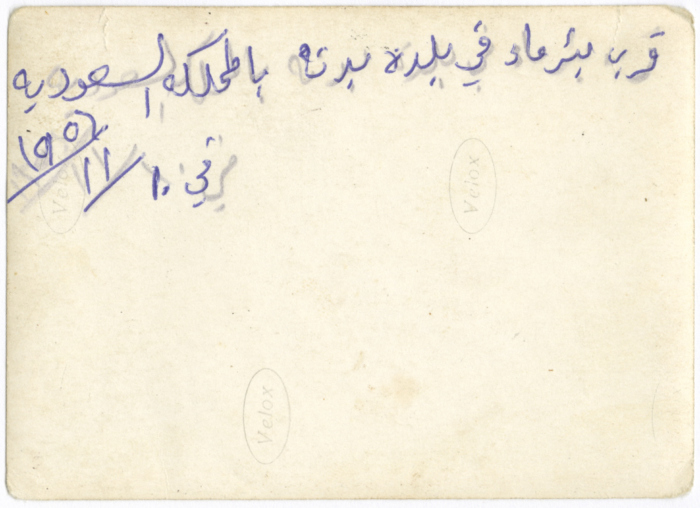 قرب بئر ماء في بلدة بدنه بالمملكه السعوديه
في ١٠/١١/١٩٥٦
Velox
Velox
Velox